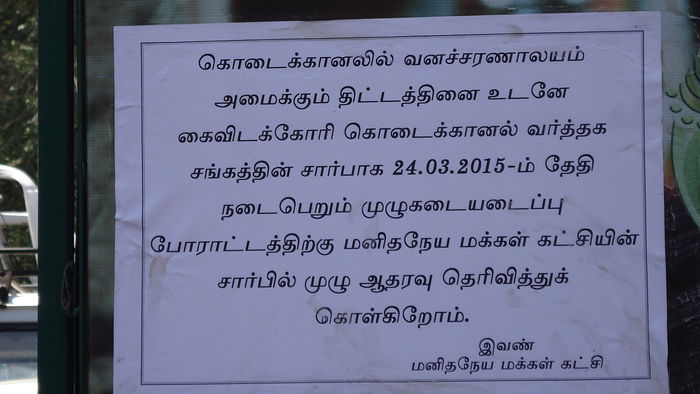 கொடைக்கானலில் வனச்சரணாலயம்
அமைக்கும் திட்டத்தினை உடனே
கைவிடக்கோரி கொடைக்கானல் வர்த்தக
சங்கத்தின் சார்பாக 24.03.2015-ம் தேதி
நடைபெறும் முழுகடையடைப்பு
போராட்டத்திற்கு மனிதநேய மக்கள் கட்சியின்
சார்பில் முழு ஆதரவு தெரிவித்துக்
கொள்கிறோம்.
இவண்
மனிதநேய மக்கள் கட்சி